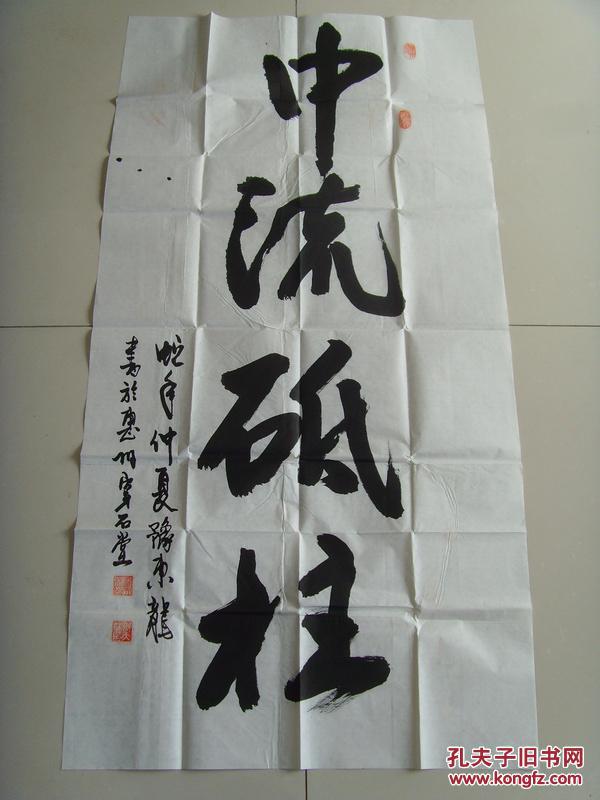 中流砥柱
蛇年仲夏豫东龙
书於惠州聚石堂
孔夫子旧书网
www.kongfz.com